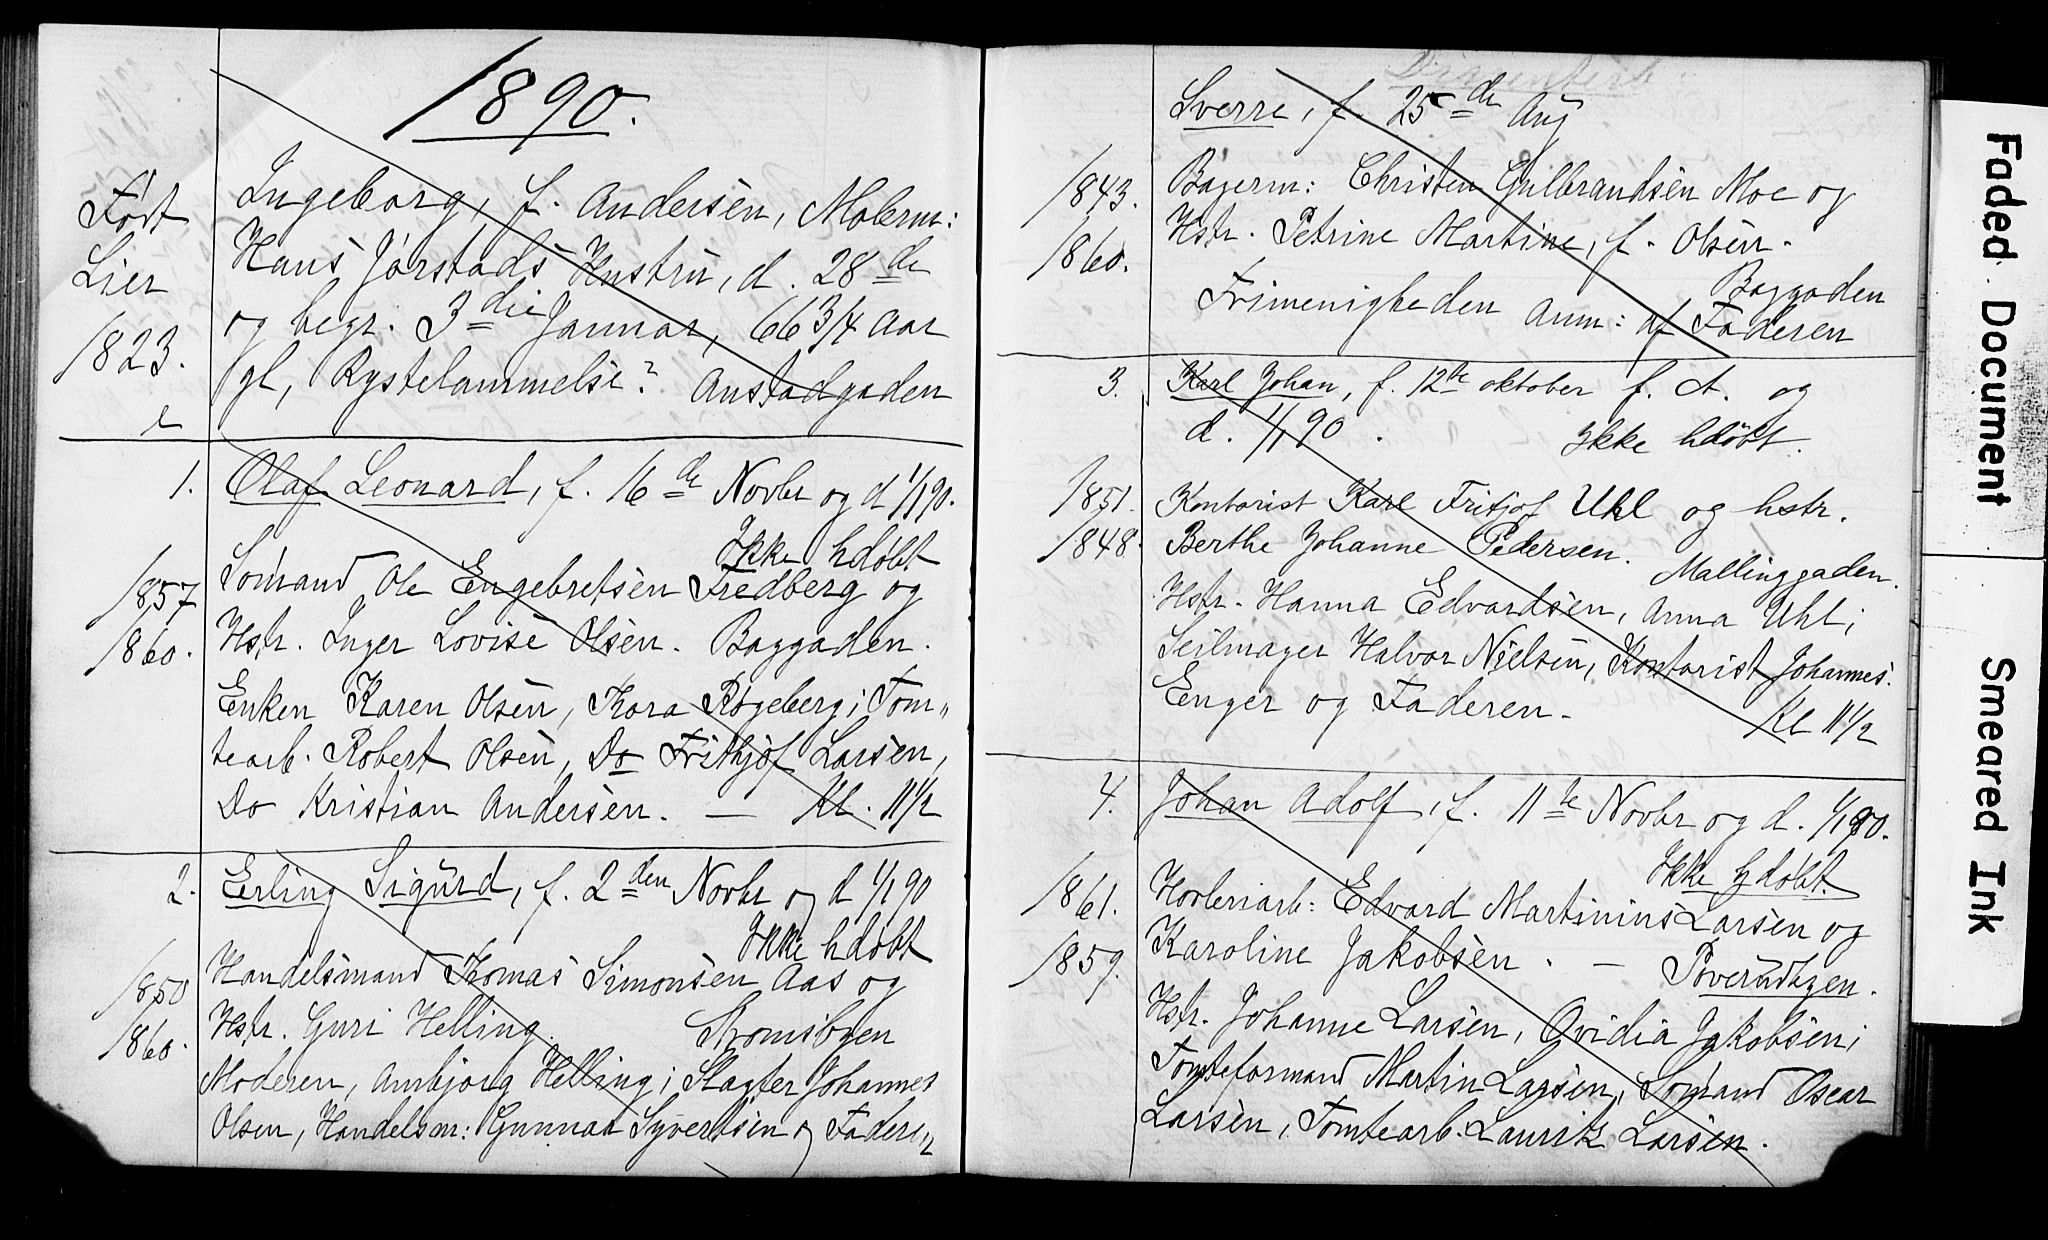 1890.
Født
Lier
1823.
Ingeborg, f. Andersen, Malerm:
Hans Jørstads Hustru, d. 28 de
og begr. 3 die Januar, 66 3/4 Aar
gl, Rystelammelse? Anstadgaden
1. Olaf Leonard, f. 16 de Novbr og d 1/1 90.
Ikke hdøbt
1857 Sømand Ole Engebretsen Fredberg og
1860. Hstr. Inger Lovise Olsen. Baggaden.
Enken Karen Olsen, Kora Røgeberg; Tom„
tearb. Robert Olsen, Do Frithjof Larsen,
Do Kristian Andersen. — Kl. 11 1/2
2. Erling Sigurd, f. 2 den Novbr og d 1/1 90
Ikke hdøbt
1850 Handelsmand Tomas Simonsen Aas og
1860. Hstr. Guri Helling. Strømsbyen
Moderen, Annbjørg Helling; Slagter Johannes
Olsen, Handelsm: Gunnar Syvertsen og Faderen
Sverre, f. 25 de Aug
1843. Bagerm: Christen Gulbrandsen Moe og
1860. Hstr. Petrine Martine, f. Olsen.
Baggaden
Frimenigheden Anm: af Faderen
3. Karl Johan, f. 12te oktober f. A. og
d. 1/1 90. Ikke hdøbt.
1851. Kontorist Karl Fritjof Uhl og hstr.
1848. Berthe Johanne Pedersen. Mallinggaden.
Hstr. Hanna Edvardsen, Anna Uhl;
Seilmager Halvor Nielsen, Kontorist Johannes
Enger og Faderen. Kl 11 1/2
4. Johan Adolf, f. 11 te Novbr og d. 1/1 90.
Ikke hdøbt.
1861. Høvleriarb: Edvard Martinius Larsen og
1859. Karoline Jakobsen. — Poverudbyen.
Hstr. Johanne Larsen, Ovidia Jakobsen;
Tomteformand Martin Larsen, Sømand Oscar
Larsen, Tomtearb. Lauritz Larsen.
Faded Document
Smeared Ink